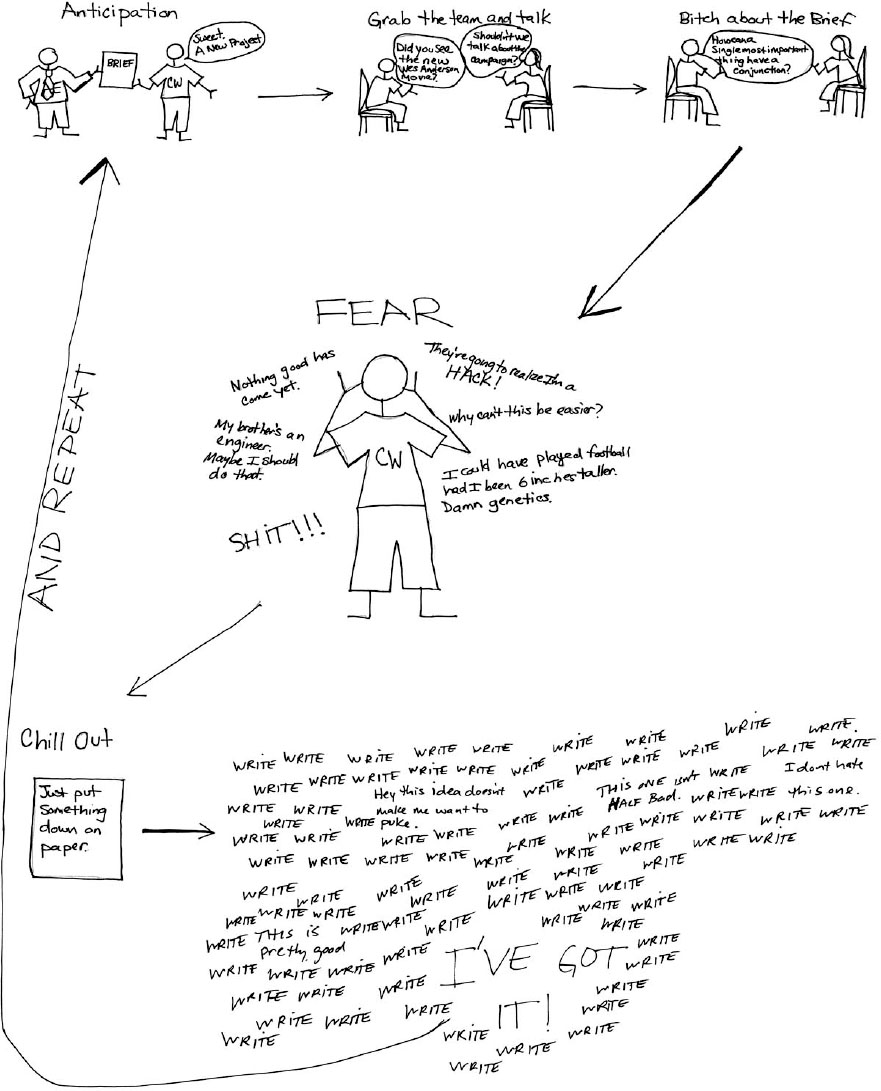 Anticipation
BRIEF
CW
Sweet,
A New Project
Grab the team and talk
Did you see
the new
Wes Anderson
Movie?
Shouldn't we
talk about the
campaign?
Bitch about the Brief
How can a
Single most important
thing have a
conjunction?
FEAR
Nothing good has
come yet.
They're going to realize I'm a
HACK!
My brother's an
engineer.
Maybe I should
do that.
why can't this be easier?
CW
I could have played football
had I been 6 inches taller.
Damn genetics.
SHIT!!!
AND REPEAT
Chill Out
Just put
Something
down on
paper.
WRITE WRITE WRITE WRITE WRITE WRITE WRITE WRITE WRITE.
WRITE WRITE WRITE WRITE WRITE WRITE WRITE WRITE WRITE WRITE WRITE
Hey this idea doesn't
make me want to
puke.
WRITE THIS ONE ISN'T
HALF Bad.
WRITE I dont hate
this one.
WRITE WRITE WRITE WRITE WRITE WRITE
WRITE WRITE
WRITE WRITE WRITE WRITE WRITE WRITE WRITE WRITE WRITE
WRITE WRITE WRITE WRITE WRITE WRITE WRITE WRITE WRITE
WRITE WRITE WRITE WRITE WRITE WRITE WRITE
WRITE WRITE WRITE WRITE WRITE WRITE WRITE
WRITE THIS IS
Pretty good
WRITE WRITE WRITE WRITE WRITE WRITE
WRITE WRITE WRITE WRITE WRITE
I'VE GOT
IT!
WRITE WRITE WRITE WRITE WRITE
WRITE WRITE WRITE WRITE
WRITE WRITE WRITE WRITE
WRITE WRITE